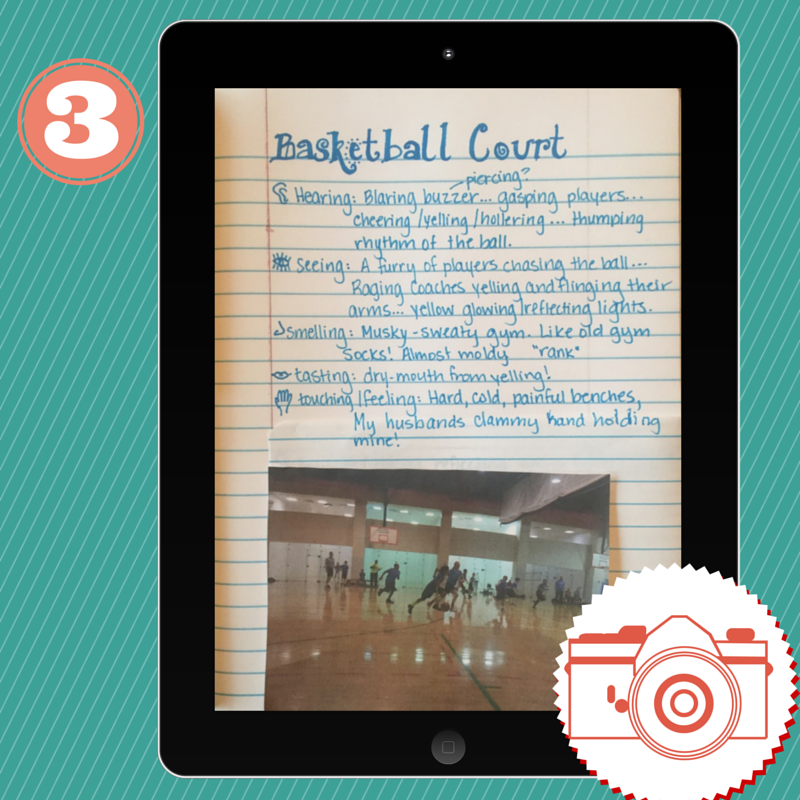 3
Basketball Court
piercing?
Hearing: Blaring buzzer... gasping players...
cheering/yelling/hollering... thumping
rhythm of the ball.
Seeing: A furry of players chasing the ball...
Raging coaches yelling and flinging their
arms... yellow glowing/reflecting lights.
Smelling: Musky-sweaty gym. Like old gym
socks! Almost moldy "rank"
tasting: dry-mouth from yelling!
touching/feeling: Hard, cold, painful benches,
My husbands clammy hand holding
mine!